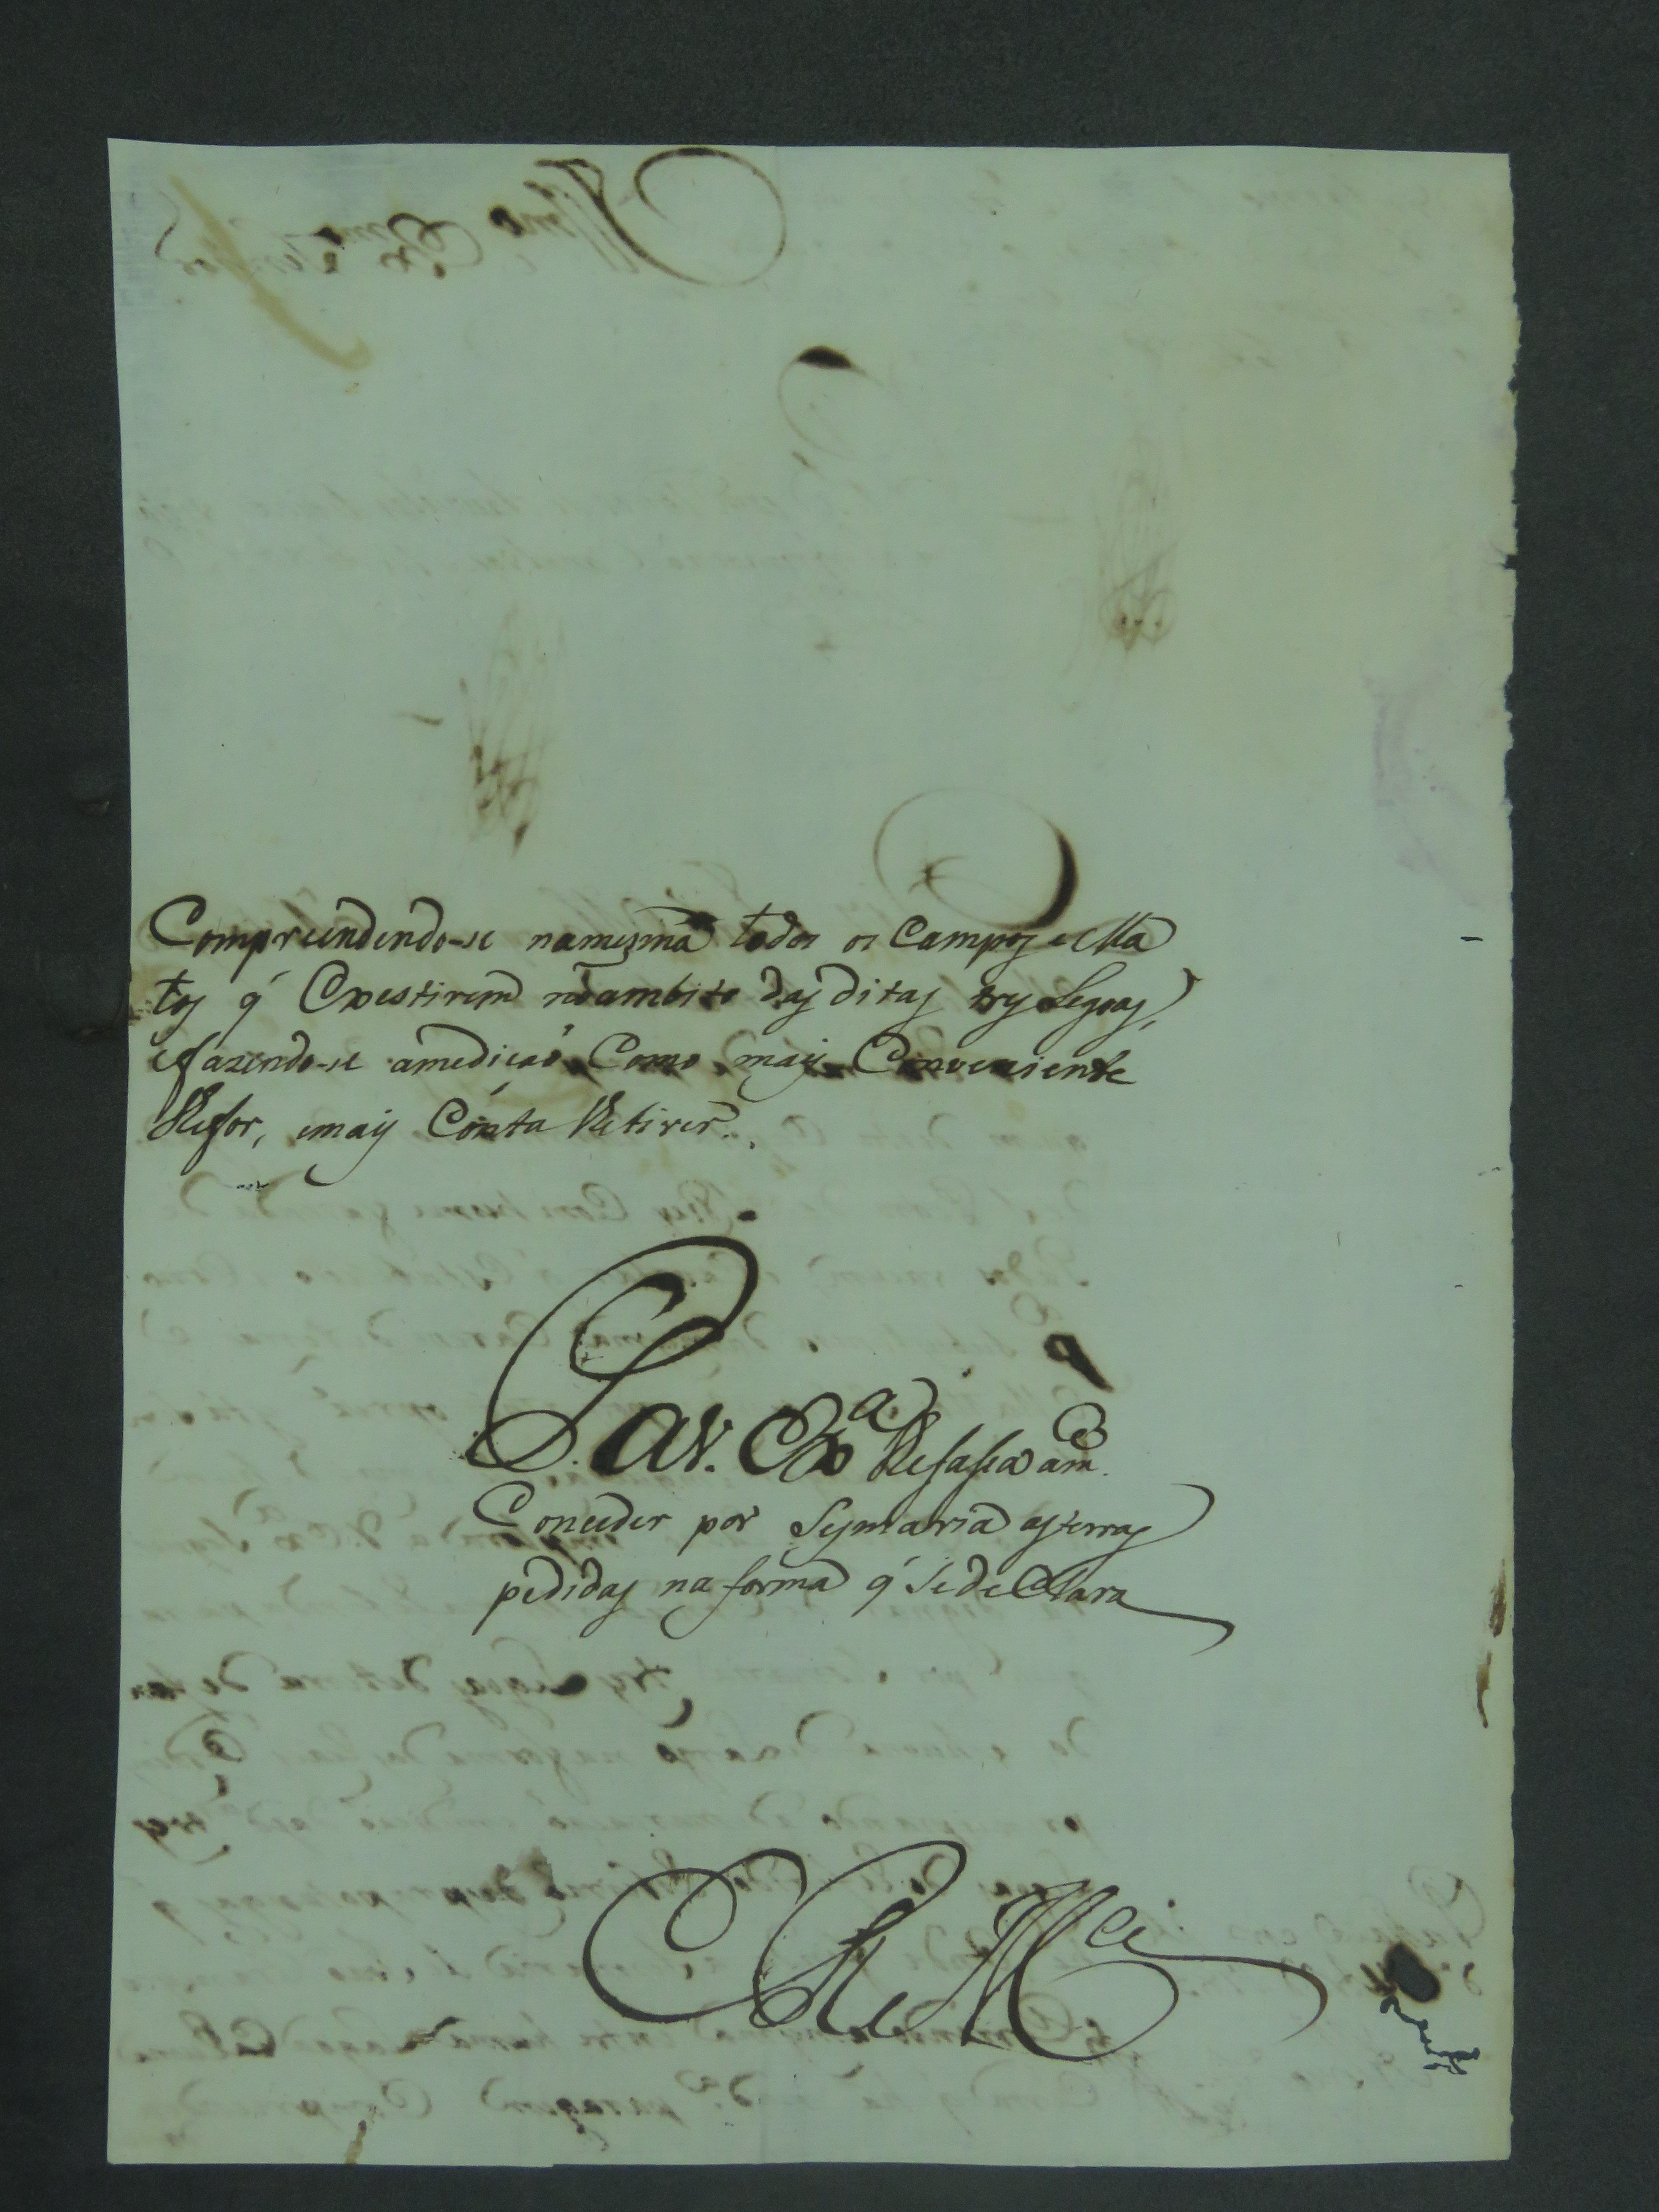 Compreendendo-se namesma todos os Campos e Ma
tos q' Existirem no ambito das ditas tres Legoas,
e fazendo-se amediçaõ Como mais Conveniente
lhe for, e mais Conta lhe tiver.
P. a V. Exª lhe faça a m.ce
Conceder por Sesmaria as terras
pedidas na forma q' Se deClara
E R Mce